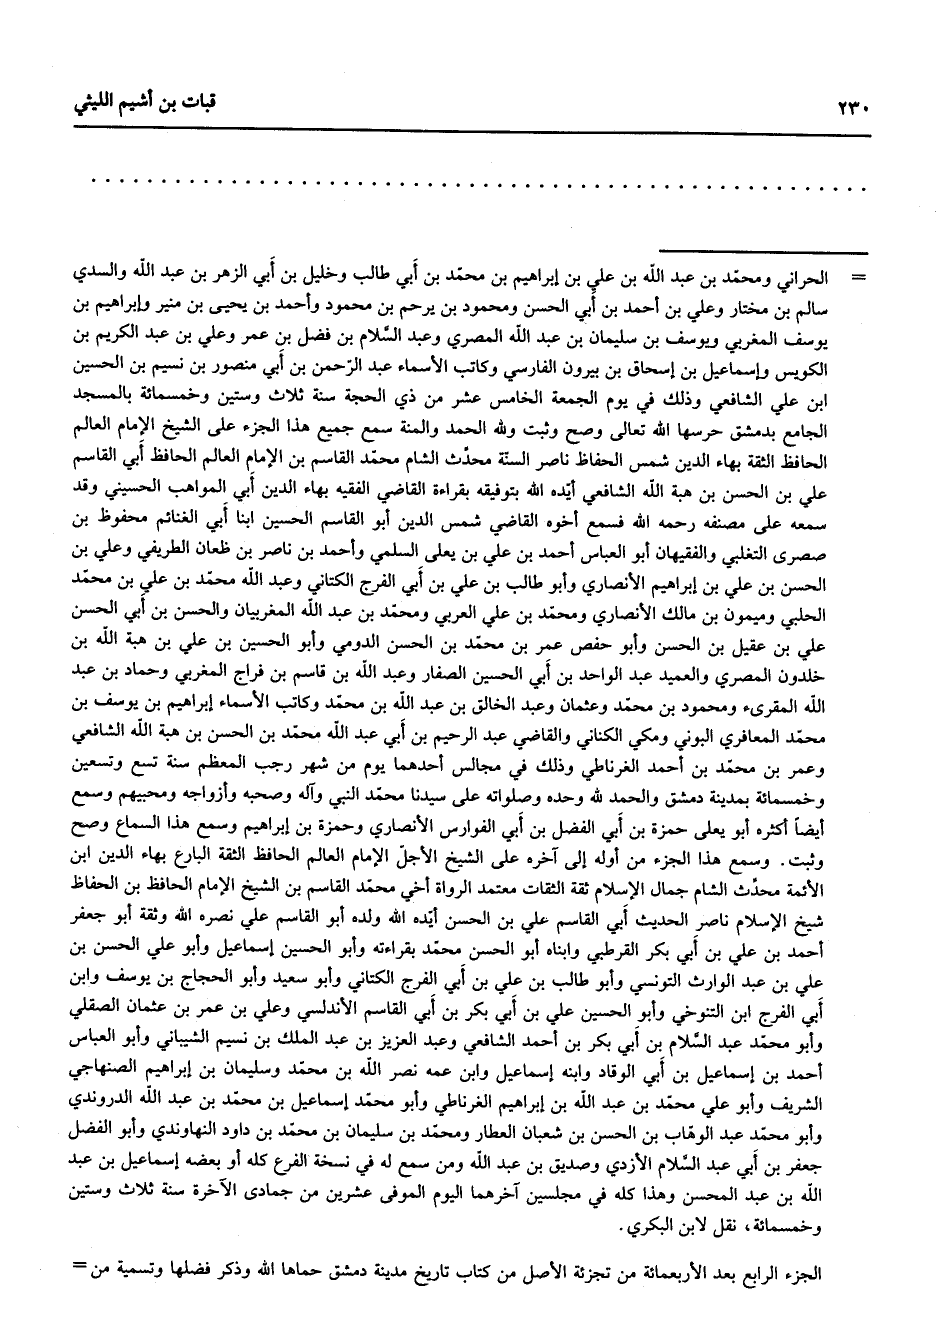 ٢٣٠
قبات بن أشيم الليثي
= الحراني ومحمّد بن عبد الله بن علي بن إبراهيم بن محمّد بن أبي طالب وخليل بن أبي الزهر بن عبد الله والسدي
سالم بن مختار وعلي بن أحمد بن أبي الحسن ومحمود بن يرحم بن محمود وأحمد بن يحيى بن منير وإبراهيم بن
يوسف المغربي ويوسف بن سليمان بن عبد الله المصري وعبد السَّلام بن فضل بن عمر وعلي بن عبد الكريم بن
الكويس وإسماعيل بن إسحاق بن بيرون الفارسي وكاتب الأسماء عبد الرّحمن بن أبي منصور بن نسيم بن الحسين
ابن علي الشافعي وذلك في يوم الجمعة الخامس عشر من ذي الحجة سنة ثلاث وستين وخمسمائة بالمسجد
الجامع بدمشق حرسها الله تعالى وصح وثبت ولله الحمد والمنة سمع جميع هذا الجزء على الشيخ الإمام العالم
الحافظ الثقة بهاء الدين شمس الحفاظ ناصر السنّة محدّث الشام محمّد القاسم بن الإمام العالم الحافظ أبي القاسم
علي بن الحسن بن هبة الله الشافعي أيّده الله بتوفيقه بقراءة القاضي الفقيه بهاء الدين أبي المواهب الحسيني وقد
سمعه على مصنفه رحمه الله فسمع أخوه القاضي شمس الدين أبو القاسم الحسين ابنا أبي الغنائم محفوظ بن
صصرى التغلبي والفقيهان أبو العباس أحمد بن علي بن يعلى السلمي وأحمد بن ناصر بن ظعان الطريفي وعلي بن
الحسن بن علي بن إبراهيم الأنصاري وأبو طالب بن علي بن أبي الفرج الكتاني وعبد الله محمّد بن علي بن محمّد
الحلبي وميمون بن مالك الأنصاري ومحمّد بن علي العربي ومحمّد بن عبد الله المغربيان والحسن بن أبي الحسن
علي بن عقيل بن الحسن وأبو حفص عمر بن محمّد بن الحسن الدومي وأبو الحسين بن علي بن هبة الله بن
خلدون المصري والعميد عبد الواحد بن أبي الحسين الصفار وعبد الله بن قاسم بن فراج المغربي وحماد بن عبد
الله المقرىء ومحمود بن محمّد وعثمان وعبد الخالق بن عبد الله بن محمّد وكاتب الأسماء إبراهيم بن يوسف بن
محمّد المعافري البوني ومكي الكناني والقاضي عبد الرحيم بن أبي عبد الله محمّد بن الحسن بن هبة الله الشافعي
وعمر بن محمّد بن أحمد الغرناطي وذلك في مجالس أحدهما يوم من شهر رجب المعظم سنة تسع وتسعين
وخمسمائة بمدينة دمشق والحمد لله وحده وصلواته على سيدنا محمّد النبي وآله وصحبه وأزواجه ومحبيهم وسمع
أيضاً أكثره أبو يعلى حمزة بن أبي الفضل بن أبي الفوارس الأنصاري وحمزة بن إبراهيم وسمع هذا السماع وصح
وثبت. وسمع هذا الجزء من أوله إلى آخره على الشيخ الأجلّ الإمام العالم الحافظ الثقة البارع بهاء الدين ابن
الأئمة محدّث الشام جمال الإسلام ثقة الثقات معتمد الرواة أخي محمّد القاسم بن الشيخ الإمام الحافظ بن الحفاظ
شيخ الإسلام ناصر الحديث أبي القاسم علي بن الحسن أيّده الله ولده أبو القاسم علي نصره الله وثقة أبو جعفر
أحمد بن علي بن أبي بكر القرطبي وابناه أبو الحسن محمّد بقراءته وأبو الحسين إسماعيل وأبو علي الحسن بن
علي بن عبد الوارث التونسي وأبو طالب بن علي بن أبي الفرج الكتاني وأبو سعيد وأبو الحجاج بن يوسف وابن
أبي الفرج ابن التنوخي وأبو الحسين علي بن أبي بكر بن أبي القاسم الأندلسي وعلي بن عمر بن عثمان الصقلي
وأبو محمّد عبد السَّلام بن أبي بكر بن أحمد الشافعي وعبد العزيز بن عبد الملك بن نسيم الشيباني وأبو العباس
أحمد بن إسماعيل بن أبي الوقاد وابنه إسماعيل وابن عمه نصر الله بن محمّد وسليمان بن إبراهيم الصنهاجي
الشريف وأبو علي محمّد بن عبد الله بن إبراهيم الغرناطي وأبو محمّد إسماعيل بن محمّد بن عبد الله الدروندي
وأبو محمّد عبد الوهّاب بن الحسن بن شعبان العطار ومحمّد بن سليمان بن محمّد بن داود النهاوندي وأبو الفضل
جعفر بن أبي عبد السَّلام الأزدي وصديق بن عبد الله ومن سمع له في نسخة الفرع كله أو بعضه إسماعيل بن عبد
الله بن عبد المحسن وهذا كله في مجلسين آخرهما اليوم الموفى عشرين من جمادى الآخرة سنة ثلاث وستين
وخمسمائة، نقل لابن البكري.
الجزء الرابع بعد الأربعمائة من تجزئة الأصل من كتاب تاريخ مدينة دمشق حماها الله وذكر فضلها وتسمية من =